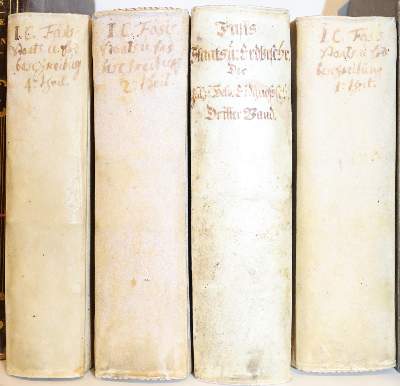 I. C. Fäsis
Staats u Erd
beschreibung
4. Theil.
I. C. Fäsis
Staats u Erd
beschreibung
2. Theil.
Fäsis
Staats u. Erdbeschr.
Der
Dritter Band.
I. C. Fäsis
Staats u Erd
beschreibung
1. Theil.